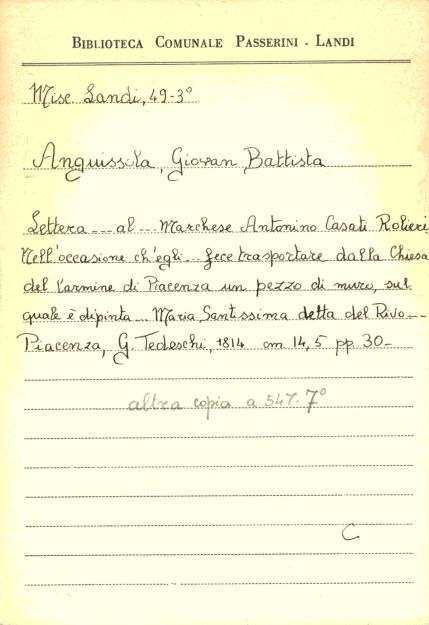 BIBLIOTECA COMUNALE PASSERINI - LANDI
Misc Landi, 49-3°
Anguissola, Giovan Battista
Lettera --- al --- Marchese Antonino Casati Rolieri
Nell'occasione ch'egli --- fece trasportare dalla Chiesa
del Carmine di Piacenza un pezzo di muro, sul
quale è dipinta --- Maria Santissima detta del Rivo ---
Piacenza, G. Tedeschi, 1814 cm 14,5 pp. 30 -
altra copia a 547. 7°
C